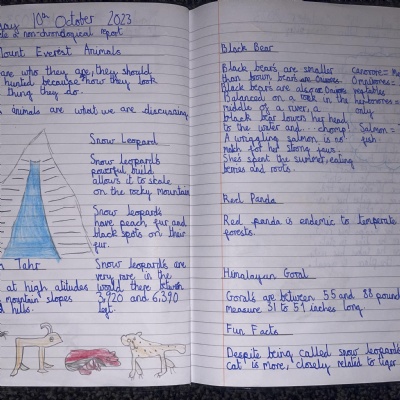 day 10th October 2023
le a non-chronological report
Mount Everest Animals
are who they are, they should
hunted because how they look
thing they do.
animals are what we are discussing
Snow Leopard
Snow leopards
powerful build
allows it to scale
on the rocky mountain
Snow leopards
have peach fur and
black spots on their
fur.
Snow leopards are
very rare in the
world there between
3,920 and 6,390
feet.
Tahr
at high altitudes
mountain slopes
d hills.
Black Bear
Black bears are smaller
than brown bears are Omnivores.
Black bears are also are Omnivores
Balanced on a rock in the
middle of a river, a
black bear lowers her head
to the water and... chomp!
A wriggling salmon is no
match for her strong jaws.
She's spent the summer, eating
berries and roots.
vegetables
only
Salmon =
fish
Red Panda
Red panda is endemic to temperate
forests.
Himalayan Goral
Gorals are between 55 and 88 pound
measure 31 to 51 inches long.
Fun Facts
Despite being called snow leopards
cat is more, closely related to tiger